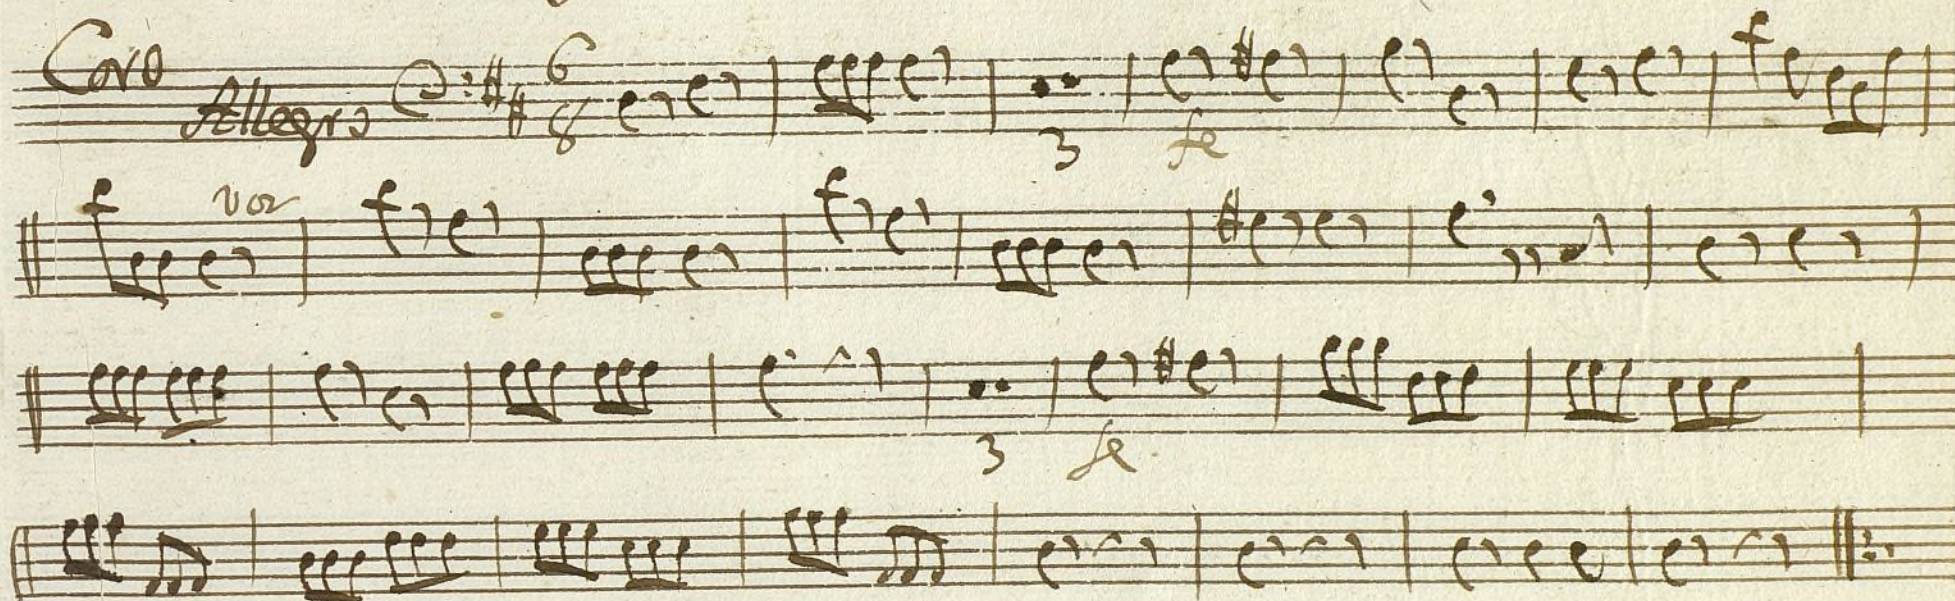 Coro
Allegro 6
8
3 fe
voz
3 fe